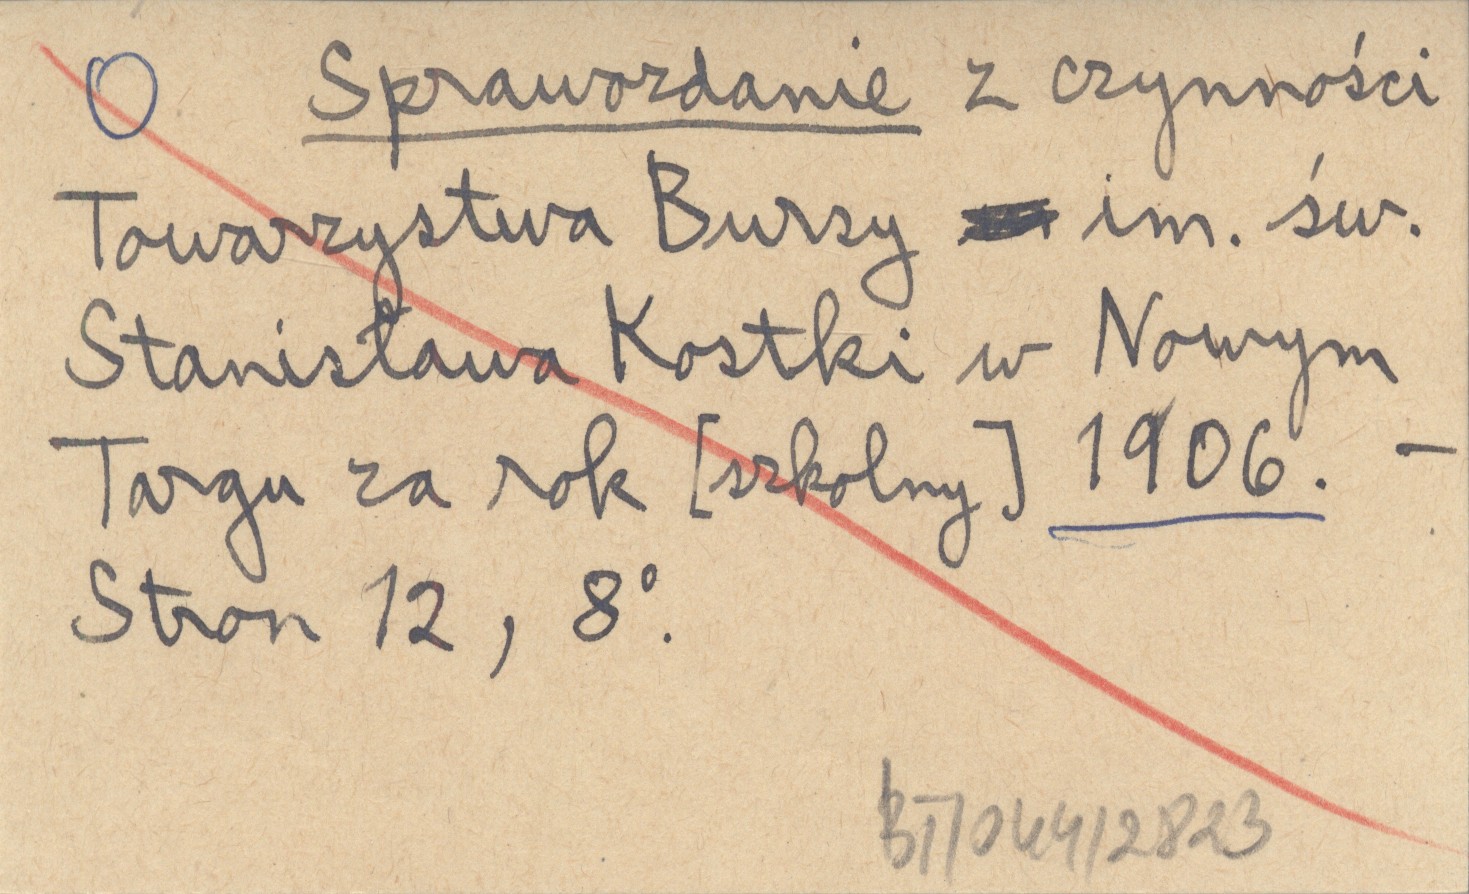 O Sprawozdanie z czynności
Towarzystwa Bursy im. św.
Stanisława Kostki w Nowym
Targu za rok [szkolny] 1906. –
Stron 12, 8°.
BT/044/2823